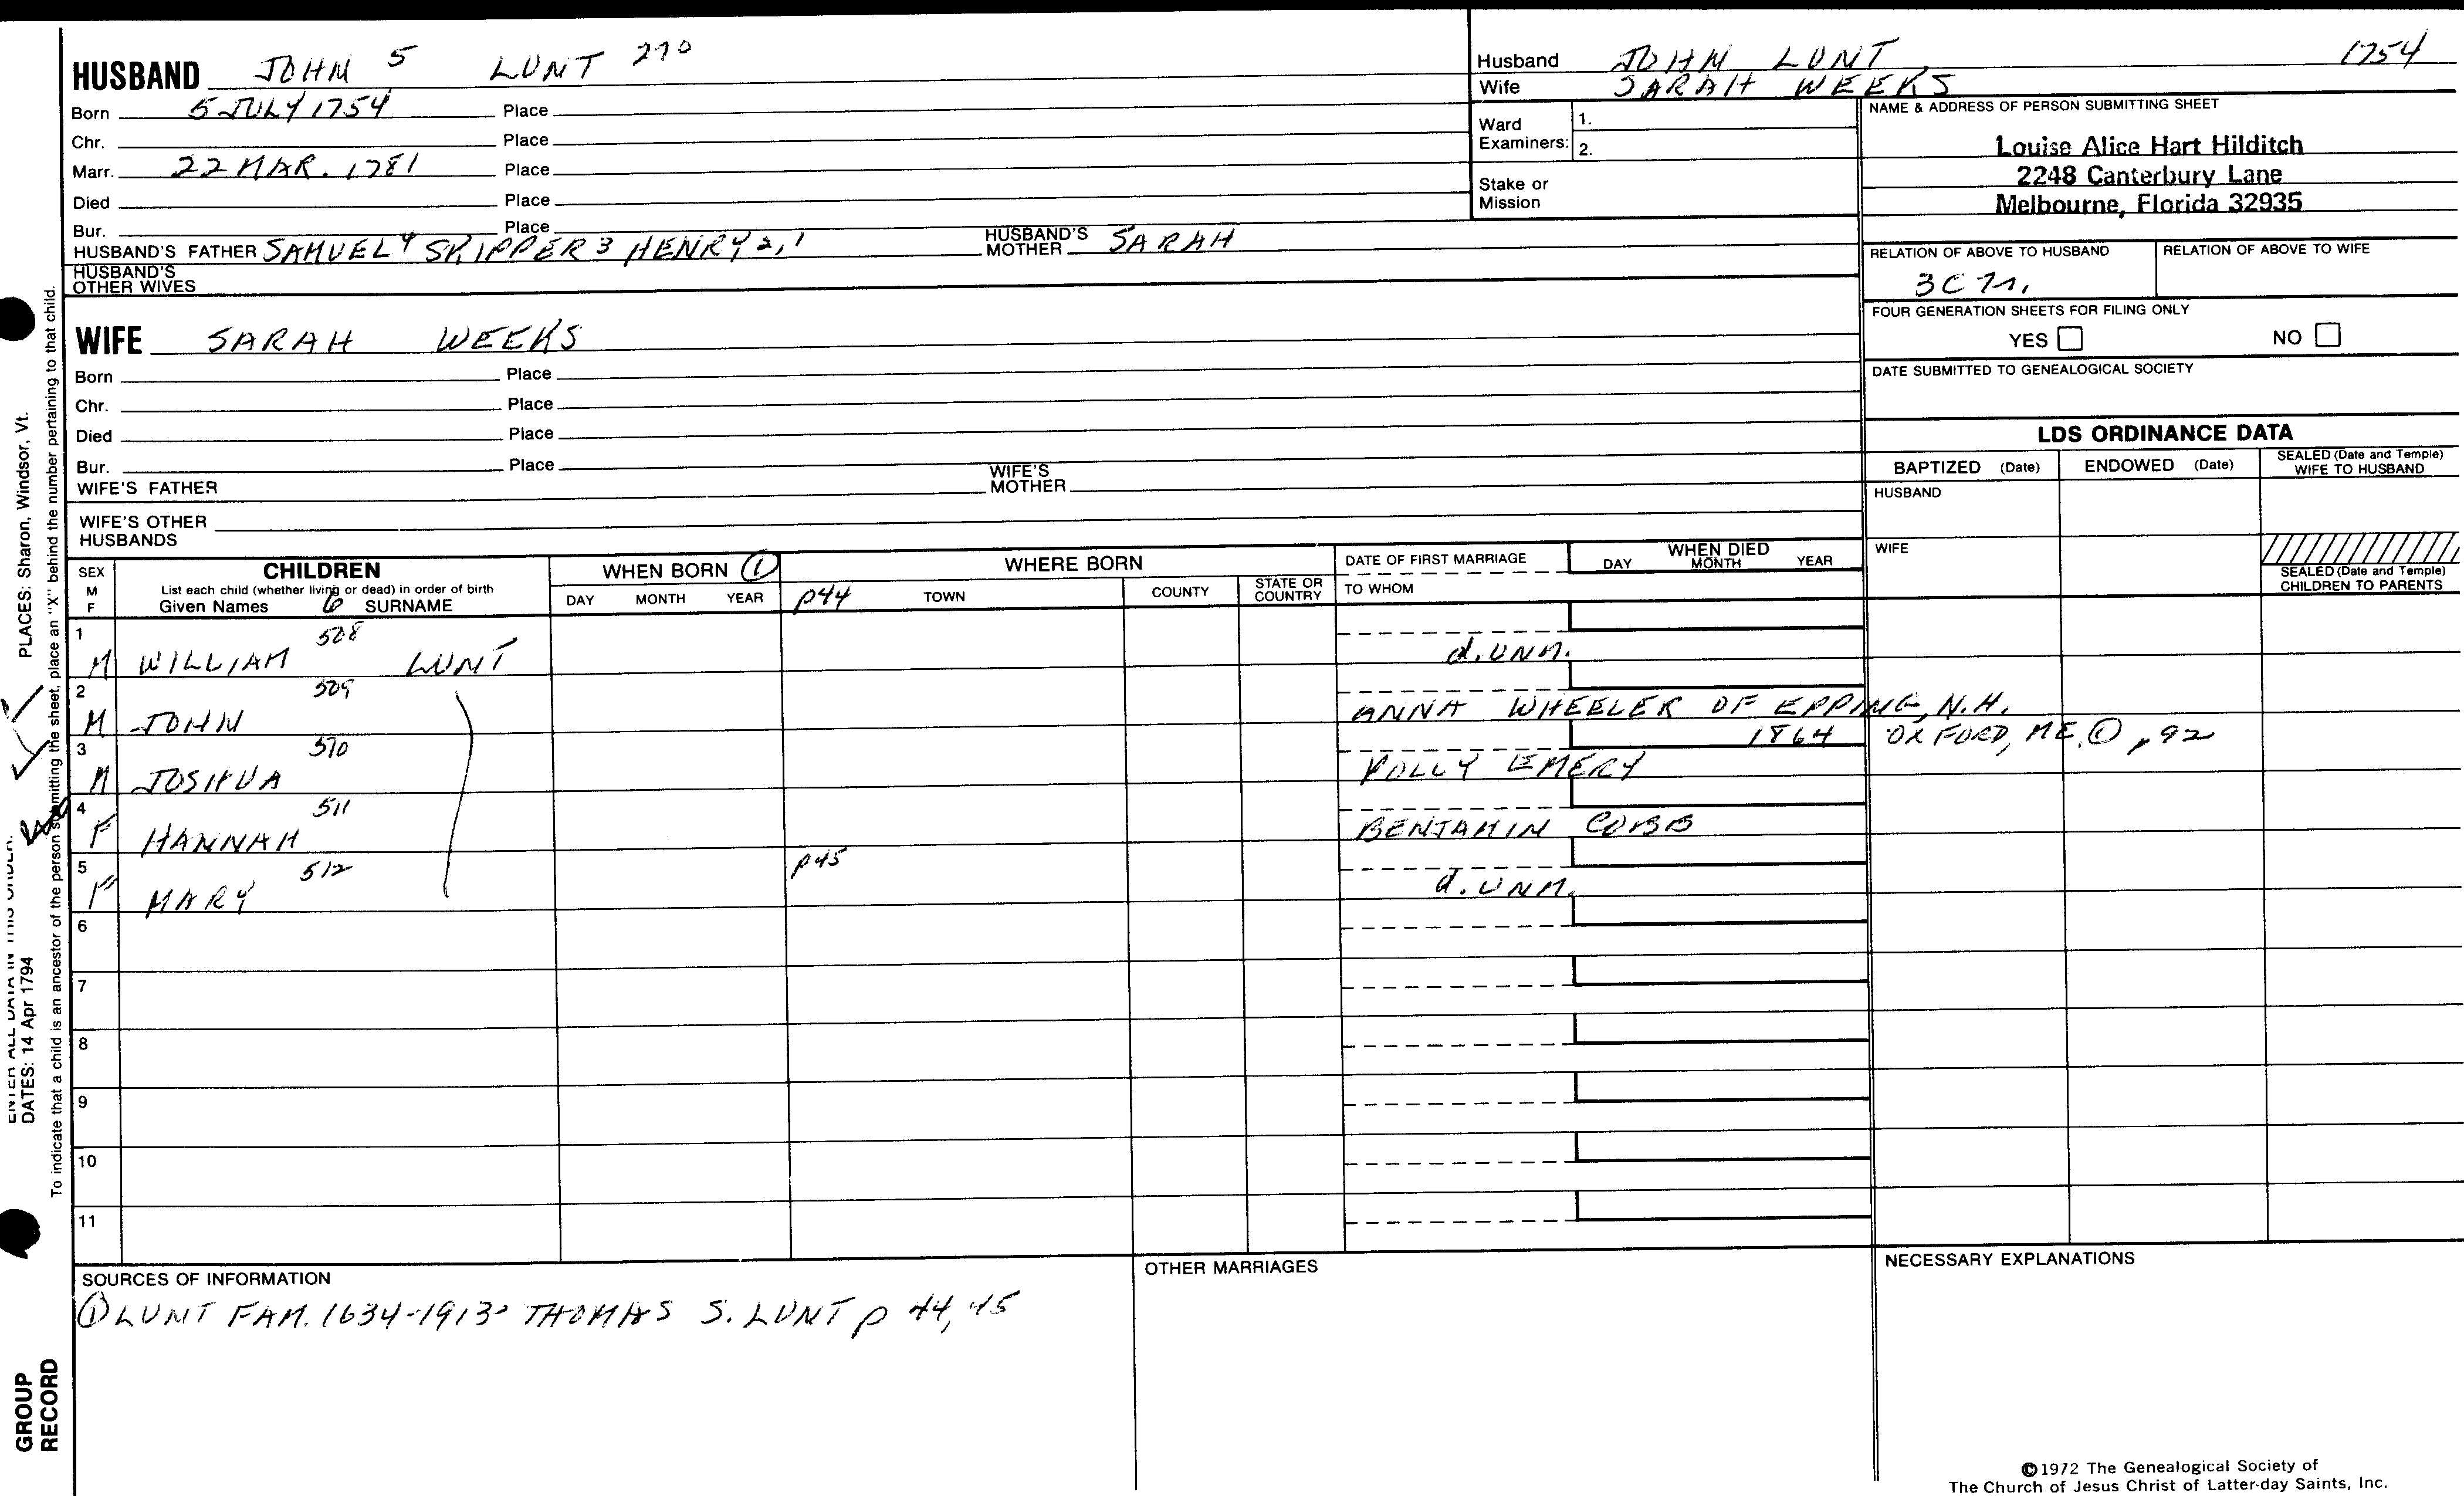 HUSBAND JOHN 5 LUNT 270
Born 5 JULY 1754 Place
Chr. Place
Marr. 22 MAR. 1781 Place
Died Place
Bur. Place
HUSBAND'S FATHER SAMUEL 4 SKIPPER 3 HENRY 2,1 HUSBAND'S MOTHER SARAH
HUSBAND'S OTHER WIVES
WIFE SARAH WEEKS
Born Place
Chr. Place
Died Place
Bur. Place
WIFE'S FATHER WIFE'S MOTHER
WIFE'S OTHER HUSBANDS
Husband JOHN LUNT 1754
Wife SARAH WEEKS
Ward Examiners: 1.
2.
Stake or Mission
NAME & ADDRESS OF PERSON SUBMITTING SHEET
Louise Alice Hart Hilditch
2248 Canterbury Lane
Melbourne, Florida 32935
RELATION OF ABOVE TO HUSBAND RELATION OF ABOVE TO WIFE
3C
FOUR GENERATION SHEETS FOR FILING ONLY
YES NO
DATE SUBMITTED TO GENEALOGICAL SOCIETY
LDS ORDINANCE DATA
BAPTIZED (Date) ENDOWED (Date) SEALED (Date and Temple) WIFE TO HUSBAND
HUSBAND
WIFE
SEALED (Date and Temple) CHILDREN TO PARENTS
SEX M F
CHILDREN
List each child (whether living or dead) in order of birth
Given Names 6 SURNAME
WHEN BORN 1
DAY MONTH YEAR
WHERE BORN
p44 TOWN COUNTY STATE OR COUNTRY
DATE OF FIRST MARRIAGE
TO WHOM
WHEN DIED
DAY MONTH YEAR
1 508
M WILLIAM LUNT d. UNM.
2 509
M JOHN ANNA WHEELER OF EPPING, N.H.
3 510 1864 OXFORD, ME. ① p92
M JOSHUA POLLY EMERY
4 511
F HANNAH BENJAMIN COBB
5 512 p45
F MARY d. UNM.
6
7
8
9
10
11
SOURCES OF INFORMATION
① LUNT FAM. 1634-1913- THOMAS S. LUNT p 44, 45
OTHER MARRIAGES
NECESSARY EXPLANATIONS
©1972 The Genealogical Society of
The Church of Jesus Christ of Latter-day Saints, Inc.
PLACES: Sharon, Windsor, Vt.
ENTER ALL DATA IN THIS ORDER:
DATES: 14 Apr 1794
To indicate that a child is an ancestor of the person submitting the sheet, place an "X" behind the number pertaining to that child.
GROUP
RECORD